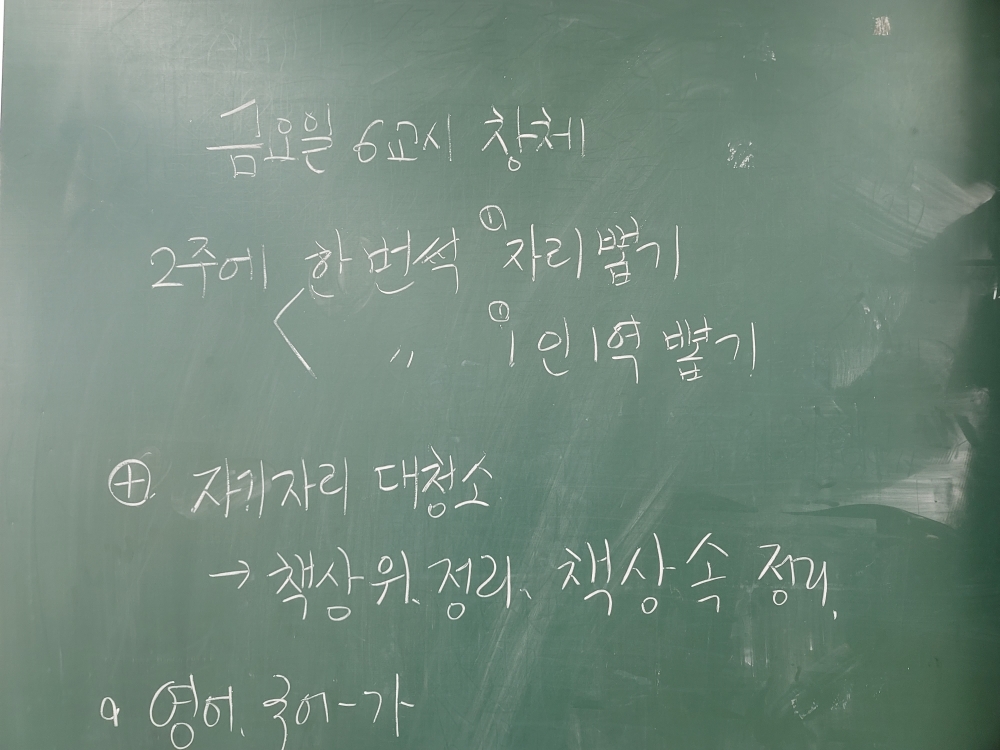 금요일 6교시 창체
2주에 한 번씩 ① 자리뽑기
〃 ① 1인 1역 뽑기
⊕ 자기자리 대청소
→ 책상 위 정리, 책상 속 정리,
영어, 국어-가